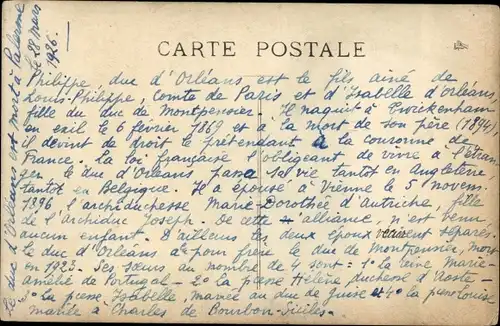 CARTE POSTALE
Le duc d'Orléans est mort à Palerme
le 28 mars
1926.
Philippe, duc d'Orléans est le fils aîné de
Louis-Philippe, Comte de Paris et d'Isabelle d'Orléans,
fille du duc de Montpensier. Il naquit à Twickenham
en exil le 6 février 1869 et à la mort de son père (1894)
il devint de droit le prétendant à la couronne de
France. La loi française l'obligeant de vivre à l'étran
ger le duc d'Orléans passa sa vie tantôt en Angleterre
tantôt en Belgique. Il a épousé à Vienne le 5 novem.
1896 l'archiduchesse Marie-Dorothée d'Autriche, fille
de l'Archiduc Joseph. De cette alliance, n'est venu
aucun enfant. D'ailleurs les deux époux vivent séparés.
Le duc d'Orléans a eu pour frère le duc de Montpensier, mort
en 192. Ses sœurs au nombre de 4 sont : 1° la reine Marie-
Amélie de Portugal - 2° la psse Hélène duchesse d'Aoste -
3° la psse Isabelle, mariée au duc de Guise et 4° la psse Louise
mariée à Charles de Bourbon-Siciles.